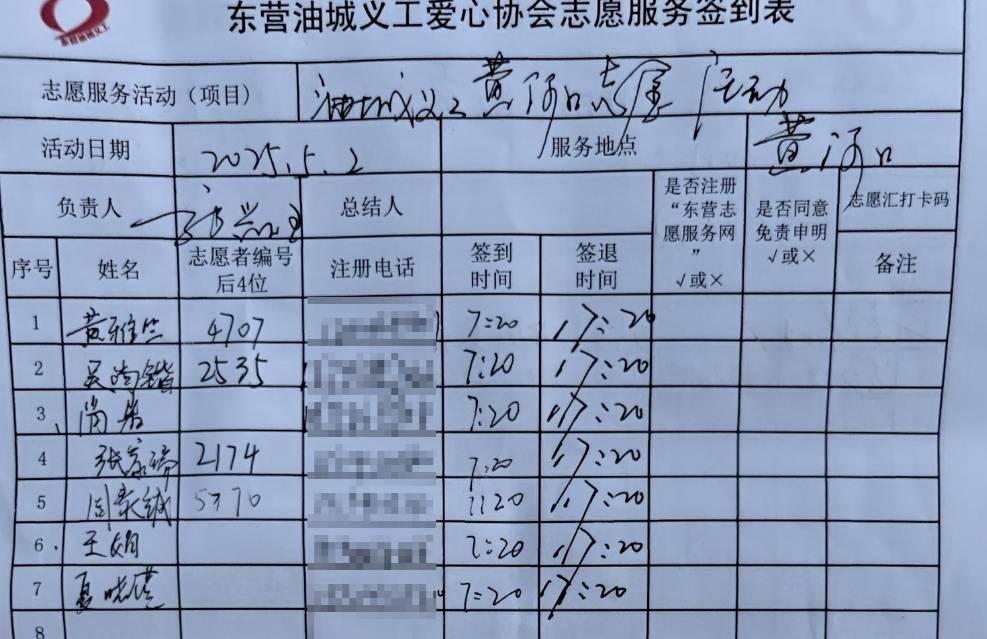 东营油城义工爱心协会志愿服务签到表
东营油城义工
志愿服务活动（项目） 油城义工黄河口志愿活动
活动日期 2025.5.2 服务地点 黄河口
负责人 总结人 是否注册“东营志愿服务网”√或× 是否同意免责申明√或× 志愿汇打卡码
序号 姓名 志愿者编号后4位 注册电话 签到时间 签退时间 备注
1 黄雅兰 4707 7:20 17:20
2 2535 7:20 17:20
3 7:20 17:20
4 2174 7:20 17:20
5 5970 17:20
6 王娟 7:20 17:20
7 夏 7:20 17:20
8